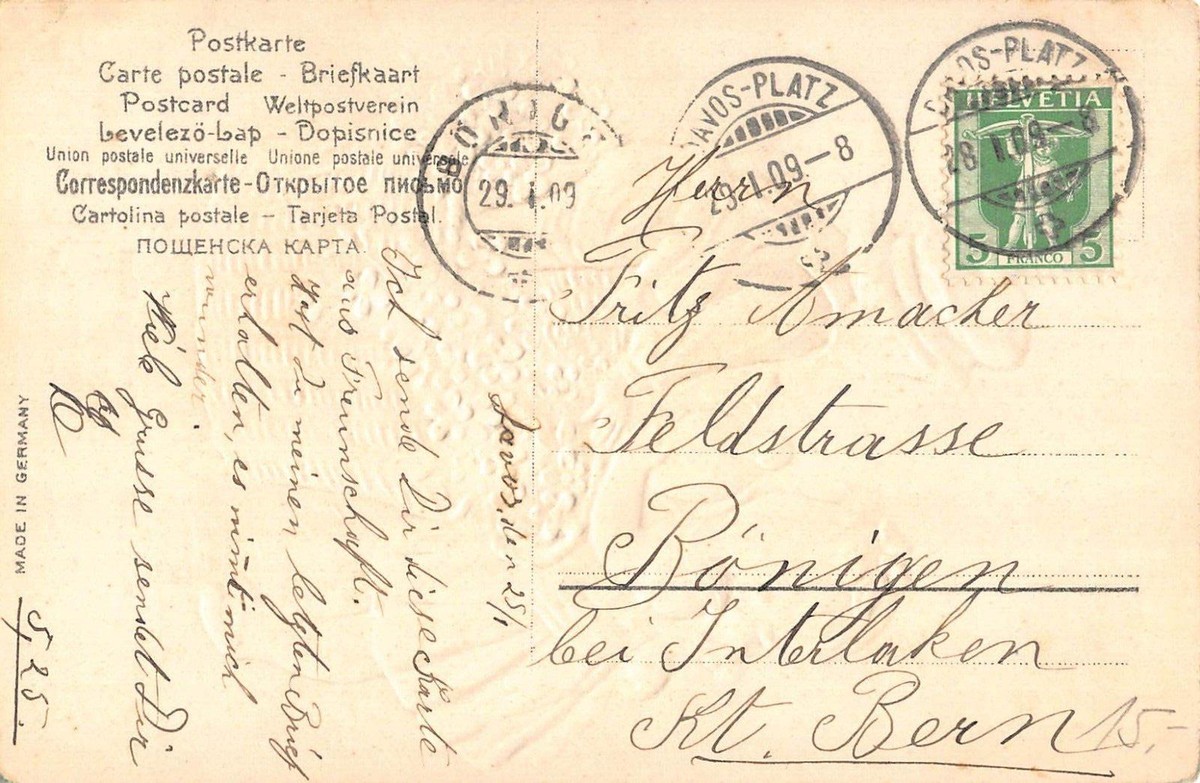 Postkarte
Carte postale - Briefkaart
Postcard Weltpostverein
Levelező-Lap - Dopisnice
Union postale universelle Unione postale universale
Correspondenzkarte - Открытое письмо
Cartolina postale - Tarjeta Postal.
ПОЩЕНСКА КАРТА.
MADE IN GERMANY
BÖNIGEN
29. I. 09
DAVOS-PLATZ
29. I. 09-8
DAVOS-PLATZ
28. I. 09-8
HELVETIA
5 FRANCO 5
Davos, den 25/1
Ich sende Dir diese Karte
aus Freunschaft.
Hast Du meinen letzten Brief
erhalten, es nimt mich
wunder.
Viele Grüsse sendet Dir
Herrn
Fritz Amacher
Feldstrasse
Bönigen
bei Interlaken
Kt. Bern
15.-
5 25.